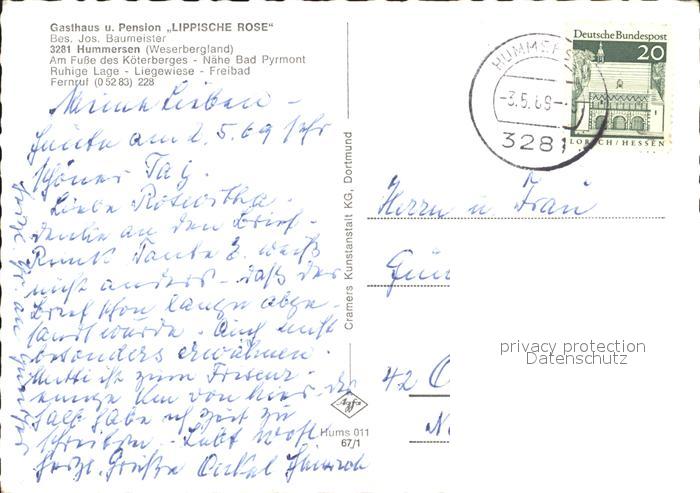 Gasthaus u. Pension „LIPPISCHE ROSE"
Bes. Jos. Baumeister
3281 Hummersen (Weserbergland)
Am Fuße des Köterberges - Nähe Bad Pyrmont
Ruhige Lage - Liegewiese - Freibad
Fernruf (0 52 83) 228
Meine Lieben -
Heute am 2.5.69 sehr
schöner Tag.
Liebe Roswitha.
denke an den Brief-
Tante weiß
nicht anders - daß der
Brief schon lange abge-
sandt wurde. Auch nicht
besonders erwähnen.
Mutti ist zum Friseur.
einige km von hier. des
halb habe ich Zeit zu
schreiben. - Lebt wohl
Herzl. Grüße Onkel Heinrich
Herzl. Gr. an
Cramers Kunstanstalt KG, Dortmund
Agfa
Hums 011
67/1
HUMMERS
-3.5.69-
3281
Deutsche Bundespost
20
LORSCH/HESSEN
Herrn u Frau
Gün
42 O
privacy protection
Datenschutz